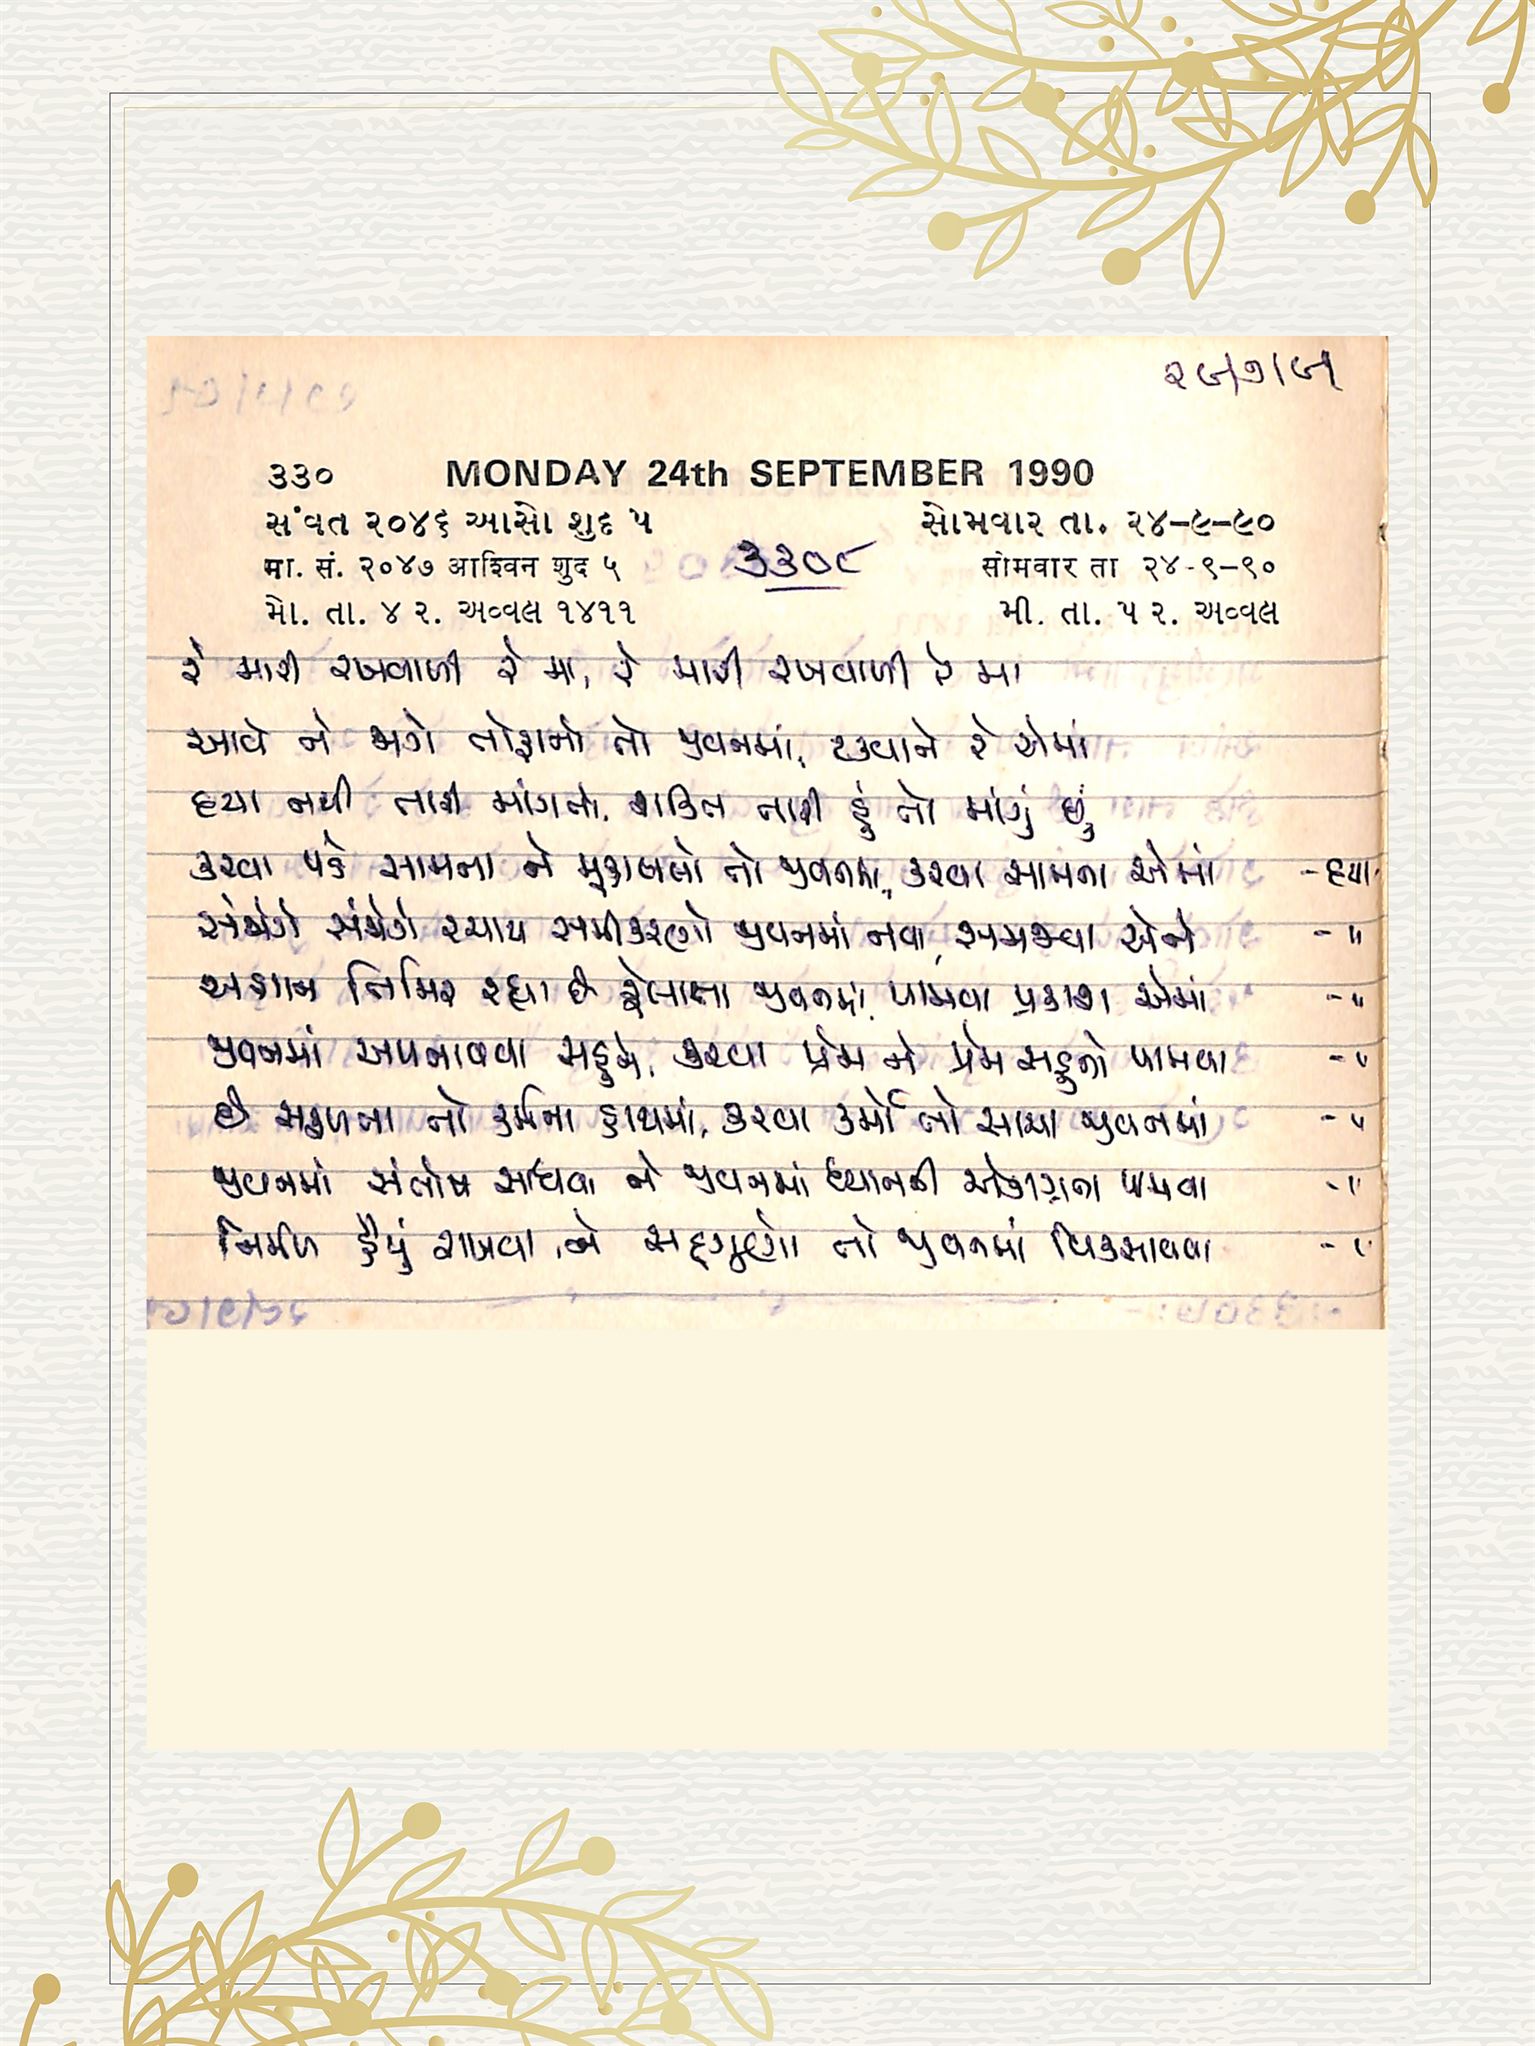 ૨૯/૭/૯૧
૩૩૦ MONDAY 24th SEPTEMBER 1990
સંવત ૨૦૪૬ આસો શુદ ૫ સોમવાર તા. ૨૪-૯-૯૦
मा. सं. २०४७ आश्विन शुद ५ सोमवार ता २४-९-९०
મો. તા. ૪ ૨. અવ્વલ ૧૪૧૧ મી. તા. ૫ ૨. અવ્વલ
૩૩૦૮
રે મારી રખવાળી રે મા, રે મારી રખવાળી રે મા
આવે ને જાગે તોફાનો તો જીવનમાં, ટકવાને રે એમાં
દયા નથી તારી માંગતો, શક્તિ તારી હું તો માંગું છું
કરવા પડે સામના ને મુકાબલો તો જીવનમાં, કરવા સામના એમાં - દયા.
સંજોગે સંજોગે રચાય સમીકરણો જીવનમાં નવા, સમજવા એને - "
અજ્ઞાન તિમિર રહ્યા છે ફેલાતા જીવનમાં, પામવા પ્રકાશ એમાં - "
જીવનમાં અપનાવવા સહુને, કરવા પ્રેમ ને પ્રેમ સહુનો પામવા - "
છે સફળતા તો કર્મના હાથમાં, કરવા કર્મો તો સાચા જીવનમાં - "
જીવનમાં સંતોષ સાધવા ને જીવનમાં ધ્યાનની એકાગ્રતા પામવા - "
નિર્મળ હૈયું રાખવા, ને સદ્ગુણો તો જીવનમાં વિકસાવવા - "